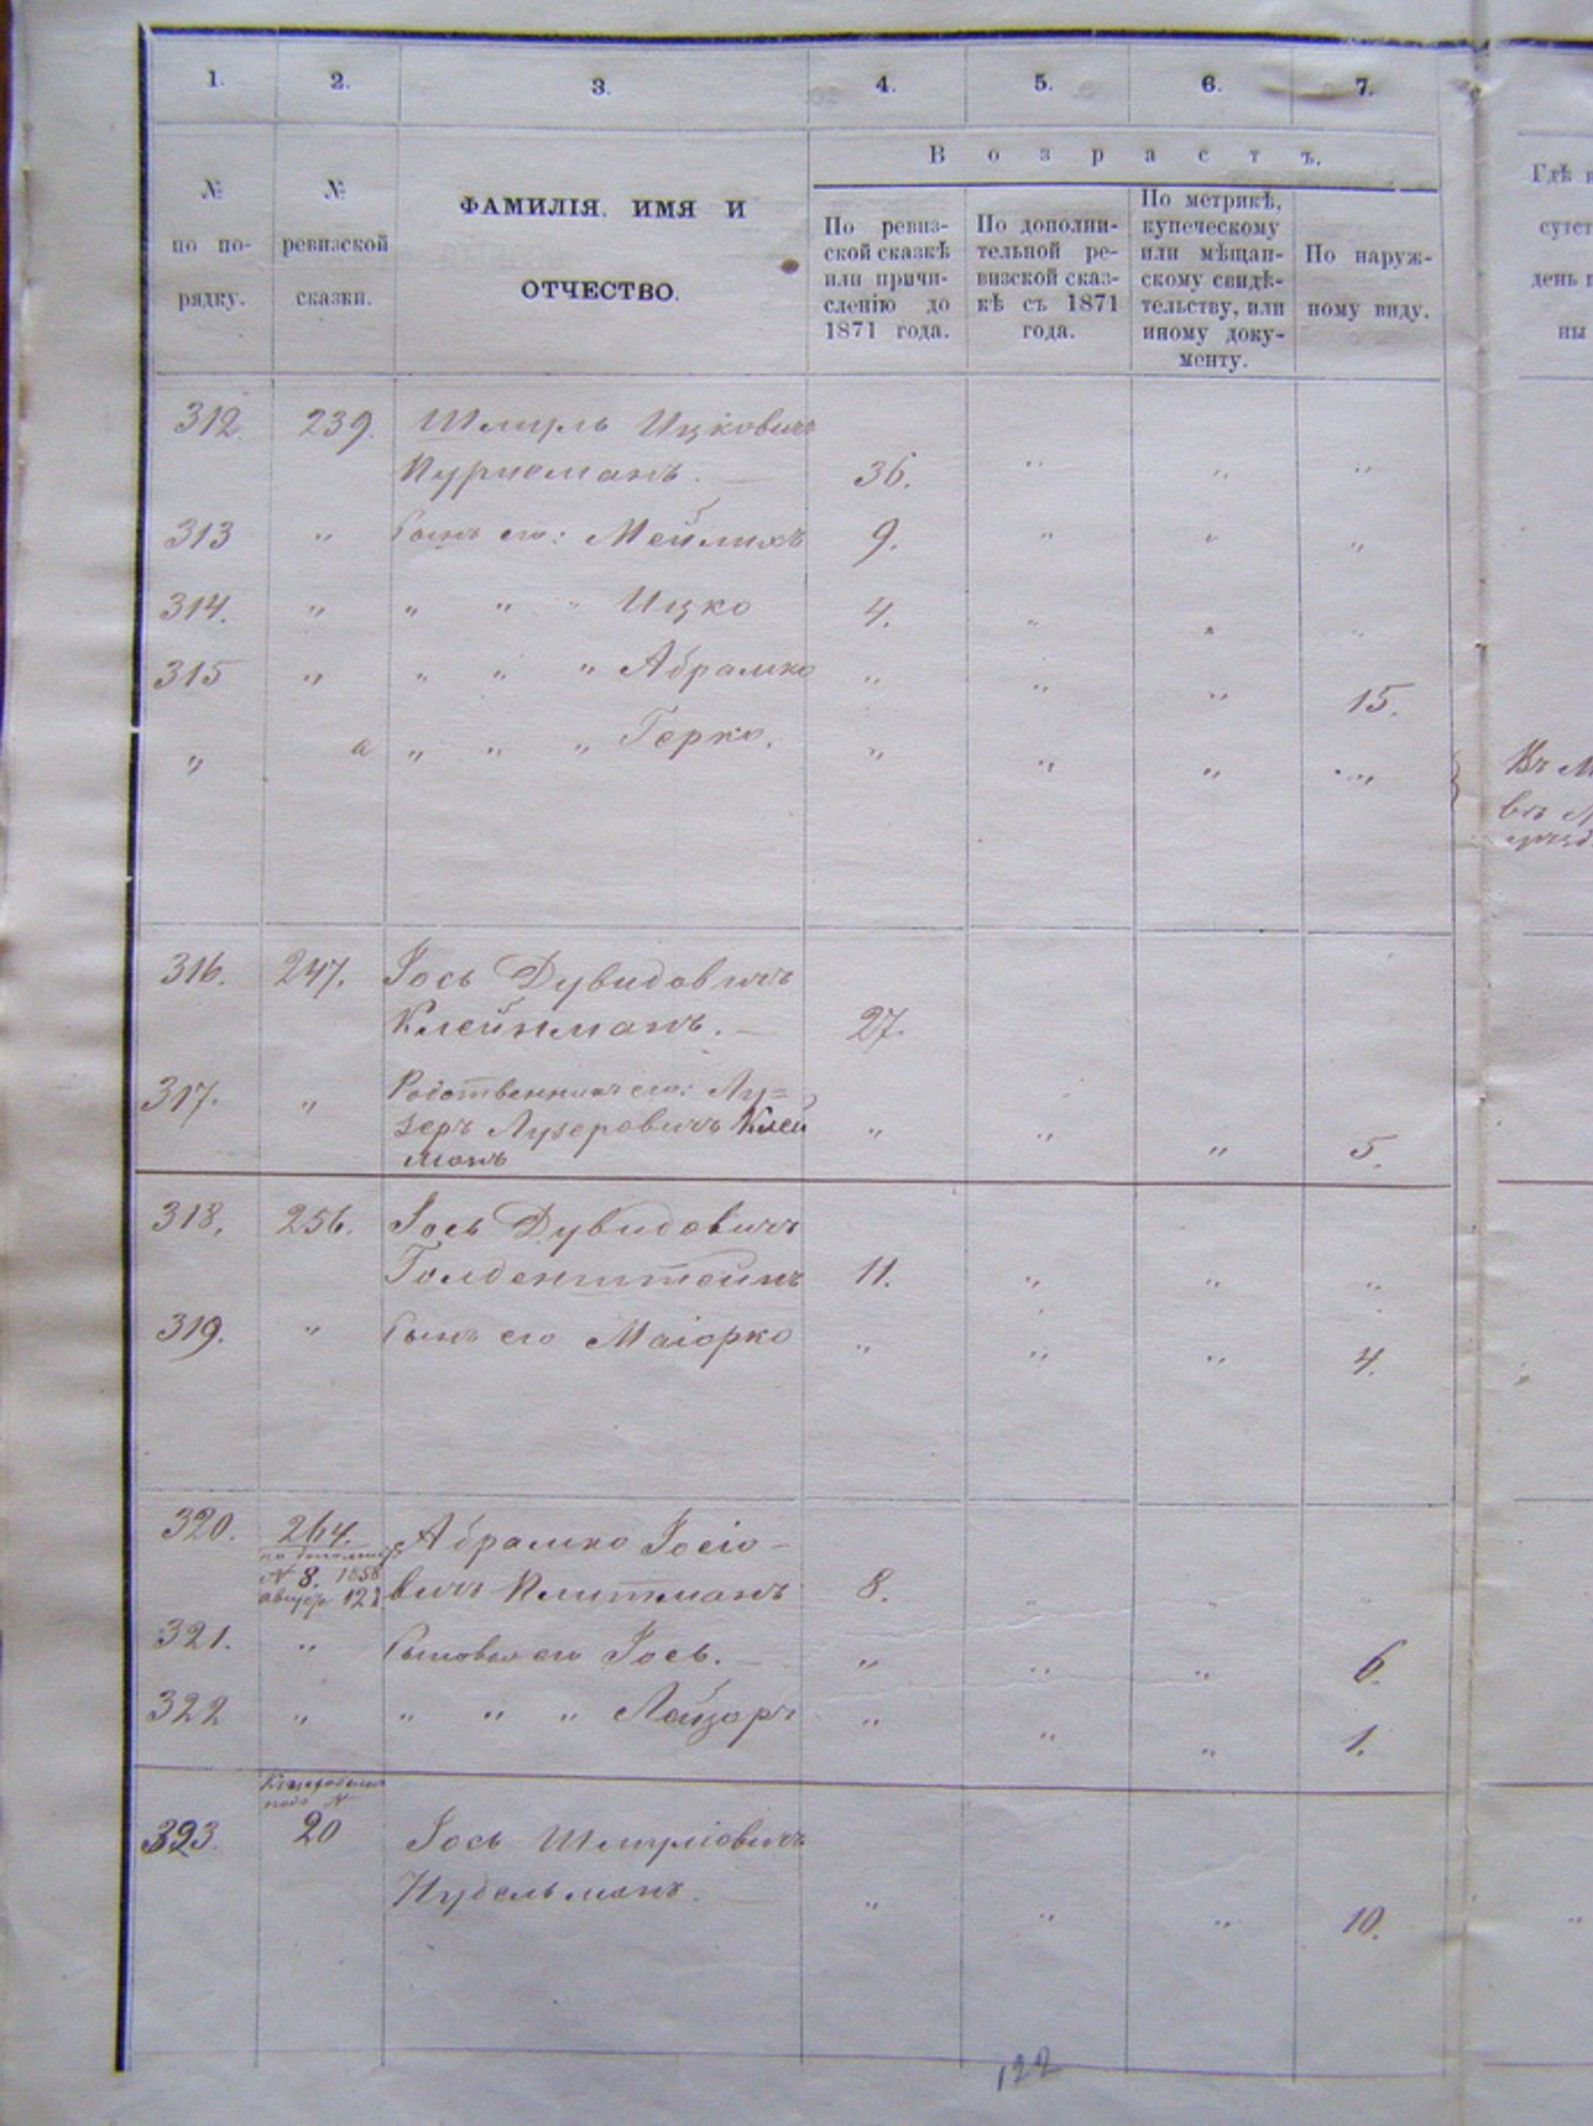 1. 2. 3. 4. 5. 6. 7.
№ по по- рядку.
№ ревизской сказки.
ФАМИЛІЯ, ИМЯ И
ОТЧЕСТВО.
Возрастъ.
По ревиз-
ской сказкѣ
или причи-
сленію до
1871 года.
По дополни-
тельной ре-
визской сказ-
кѣ съ 1871
года.
По метрикѣ,
купеческому
или мѣщан-
скому свидѣ-
тельству, или
иному доку-
менту.
По наруж-
ному виду.
Гдѣ
сутст
день
ны
312. 239. Шмуль Ицковичъ
36. " " "
313 " Сынъ его: Мейлихъ 9. " " "
314. " " " " Ицко 4. " " "
315 " " " " Абрамко " " " 15.
" а " " " Герко. " " " "
Въ М
въ
316. 247. Іось Дувидовичъ
Клейнманъ. — 27.
317. " Родственникъ его: Лу=
зеръ Лузеровичъ Клей " " " 5.
манъ
318. 256. Іось Дувидовичъ
Голденштейнъ 11. " " "
319. " Сынъ его Маіорко " " " 4.
320. 264. Абрамко Іосіо-
№ 8. 1858
вичъ Клитманъ 8. " " "
321. " Сыновья его Іось. — " " " 6.
322 " " " " Лейзоръ " " " 1.
323. 20 Іось Шмуліовичъ
Нудельманъ. — " " " 10.
122